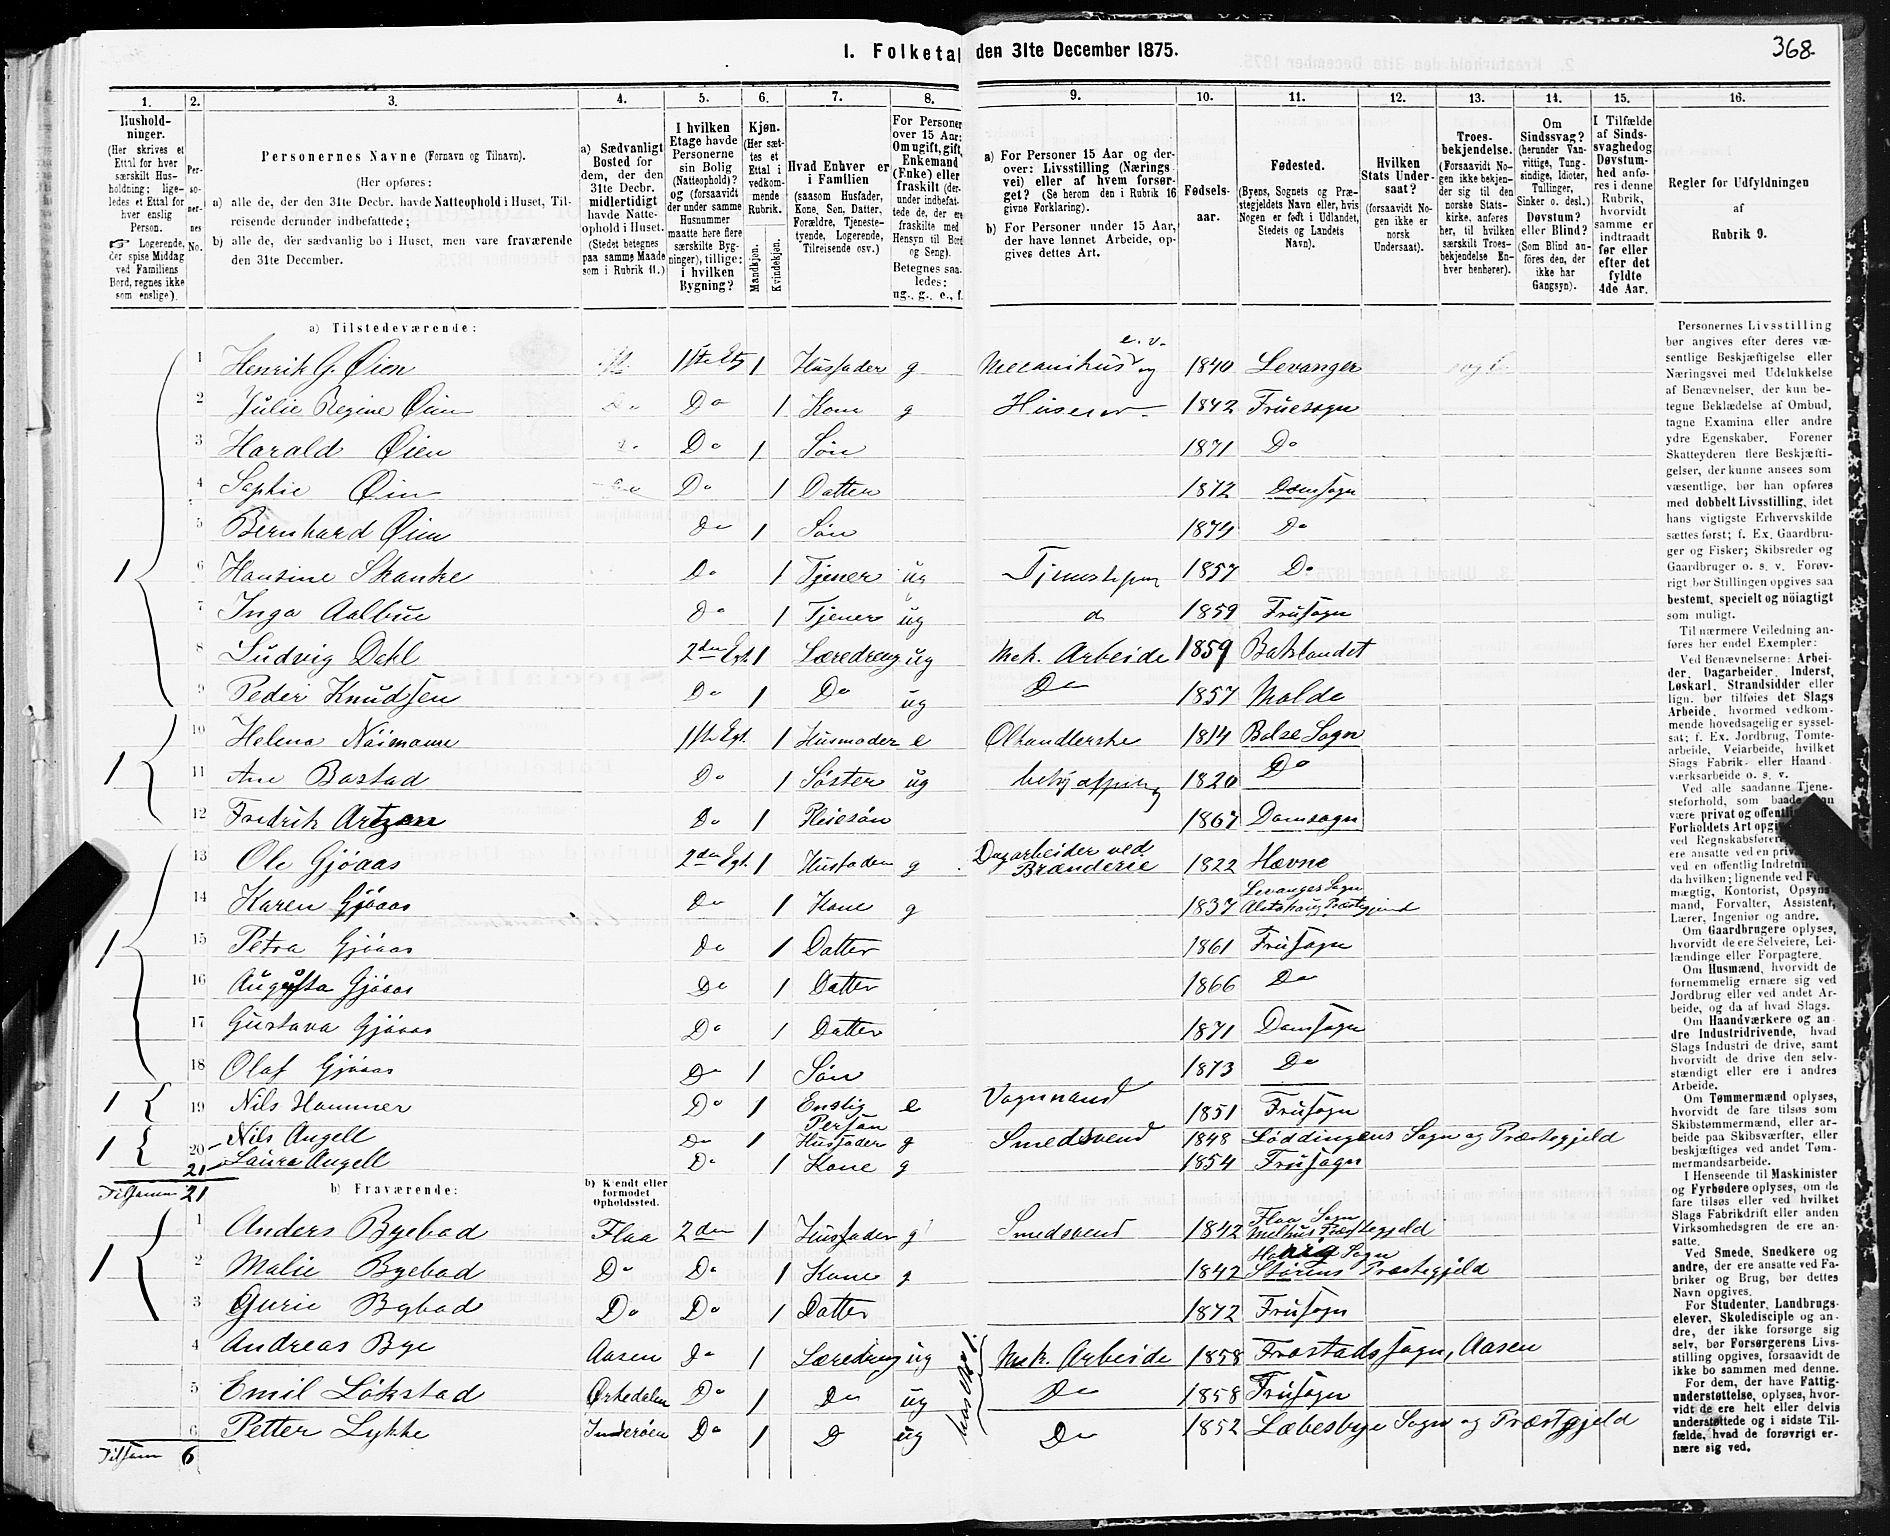 368.
I. Folketal den 31te December 1875.
1. 2. 3. 4. 5. 6. 7. 8. 9. 10. 11. 12. 13. 14. 15. 16.
Husholdninger.
(Her skrives et Ettal for hver særskilt Husholdning; ligeledes et Ettal for hver enslig Person.
☞ Logerende, der spise Middag ved Familiens Bord, regnes ikke som enslige).
Personernes No.
Personernes Navne (Fornavn og Tilnavn).
(Her opføres:
a) alle de, der den 31te Decbr. havde Natteophold i Huset, Tilreisende derunder indbefattede;
b) alle de, der sædvanlig bo i Huset, men vare fraværende den 31te December.
a) Sædvanligt Bosted for dem, der den 31te Decbr. midlertidigt havde Natteophold i Huset.
(Stedet betegnes paa samme Maade som i Rubrik 11.)
I hvilken Etage havde Personerne sin Bolig (Natteophold)? og (forsaavidt der under samme Husnummer maatte høre flere særskilte Bygninger), tillige: i hvilken Bygning?
Kjøn.
(Her sættes et Ettal i vedkommende Rubrik.
Mandkjøn.
Kvindekjøn.
Hvad Enhver er i Familien
(saasom Husfader, Kone, Søn, Datter, Forældre, Tjenestetyende, Logerende, Tilreisende osv.)
For Personer over 15 Aar: Om ugift, gift, Enkemand (Enke) eller fraskilt (derunder indbefattede de, der ere fraskilte med Hensyn til Bord og Seng).
Betegnes saaledes: ug., g., e., f.
a) For Personer 15 Aar og derover: Livsstilling (Næringsvei) eller af hvem forsørget? (Se herom den i Rubrik 16 givne Forklaring).
b) For Personer under 15 Aar, der have lønnet Arbeide, opgives dettes Art.
Fødselsaar.
Fødested.
(Byens, Sognets og Præstegjeldets Navn eller, hvis Nogen er født i Udlandet, Stedets og Landets Navn).
Hvilken Stats Undersaat?
(forsaavidt Nogen ikke er norsk Undersaat).
Troesbekjendelse.
(Forsaavidt Nogen ikke bekjender sig til den norske Statskirke, anføres her, til hvilken særskilt Troesbekjendelse Enhver henhører).
Om Sindssvag? (herunder Vanvittige, Tungsindige, Idioter, Tullinger, Sinker o. desl.) Døvstum? eller Blind?
(Som Blind anføres den, der ikke har Gangsyn).
I Tilfælde af Sindssvaghed og Døvstumhed anføres i denne Rubrik, hvorvidt samme er indtraadt før eller efter det fyldte 4de Aar.
Regler for Udfyldningen af Rubrik 9.
a) Tilstedeværende:
1 1 Henrik G. Øien 1ste Etg 1 Husfader g Mecanikus e. v. og 1840 Levanger
2 Julie Regine Øien Do Do 1 Kone g Huseier 1842 Fruesogn
3 Harald Øien Do 1 Søn 1871 Do
4 Sophie Øien Do 1 Datter 1872 Domsogn
5 Bernhard Øien Do 1 Søn 1874 Do
6 Hansine Skanke Do 1 Tjener ug 1857 Do
7 Inga Aalbue Do 1 Tjener ug 1859 Frusogn
8 Ludvig Dahl 2den Etg. 1 Læredreng ug Mek. Arbeide 1859 Baklandet
9 Peder Knudsen Do 1 Do ug Do 1857 Molde
1 10 Helena Nöimann 1ste Etg. 1 Husmoder e Ölhandlerske 1814
11 Ane Bostad Do 1 Söster ug 1820 Do
12 Fredrik Do 1 Pleiesön 1867 Domsogn
1 13 Ole Gjöaas 2den Etg. 1 Husfader g Dagarbeider ved Brænderie 1822 Hævne
14 Karen Gjöaas Do 1 Kone g 1837 Levanger Sogn
15 Petra Gjöaas Do 1 Datter 1861 Frusogn
16 Augusta Gjöaas Do 1 Datter 1866 Do
17 Gustava Gjöaas Do 1 Datter 1871 Domsogn
18 Olaf Gjöaas Do 1 Sön 1873 Do
1 19 Nils Hammer Do 1 Enslig Person e Vognmand 1851 Frusogn
1 20 Nils Angell Do 1 Husfader g Smedsvend 1848 Löddingens Sogn og Præstegjeld
21 Laura Angell Do 1 Kone g 1854 Frusogn
Tilsam 21
b) Fraværende:
b) Kjendt eller formodet Opholdssted.
1 1 Anders Byebad Flaa 2den 1 Husfader g Smedsvend 1842 Flaa Sogn Melhus Præstegjeld
2 Malie Byebad Do Do 1 Kone g 1842 Sogn Störens Præstegjeld
3 Gurie Bybad Do Do 1 Datter 1872 Frusogn
4 Andreas Bye Aasen Do 1 Læredreng ug Mek. Arbeide 1858 Frostads Sogn, Aasen
5 Emil Lökstad Örkedalen Do 1 Do ug Do 1858 Frusogn
6 Petter Lykke Inderöen Do 1 D ug Do 1852 Læbesbye Sogn og Præstgjeld
Tilsam 6
Personernes Livsstilling bør angives efter deres væsentlige Beskjæftigelse eller Næringsvei med Udelukkelse af Benævnelser, der kun betegne Beklædelse af Ombud, tagne Examina eller andre ydre Egenskaber. Forener Skatteyderen flere Beskjæftigelser, der kunne ansees som væsentlige, bør han opføres med dobbelt Livsstilling, idet hans vigtigste Erhvervskilde sættes først; f. Ex. Gaardbruger og Fisker; Skibsreder og Gaardbruger o. s. v. Forøvrigt bør Stillingen opgives saa bestemt, specielt og nöiagtigt som muligt.
Til nærmere Veiledning anføres her endel Exempler:
Ved Benævnelserne: Arbeider, Dagarbeider, Inderst, Løskarl, Strandsidder eller lign. bør tilføies det Slags Arbeide, hvormed vedkommende hovedsagelig er sysselsat; f. Ex. Jordbrug, Tomtearbeide, Veiarbeide, hvilket Slags Fabrik- eller Haandværksarbeide o. s. v.
Ved alle saadanne Tjenesteforhold, som baade kan være privat og offentlig
Om Gaardbrugere oplyses, hvorvidt de ere Selveiere, Leilændinge eller Forpagtere.
Om Husmænd, hvorvidt de fornemmelig ernære sig ved Jordbrug eller ved andet Arbeide, og da af hvad Slags.
Om Haandværkere og andre Industridrivende, hvad Slags Industri de drive, samt hvorvidt de drive den selvstændigt eller ere i andres Arbeide.
Om Tømmermænd oplyses, hvorvidt de fare tilsøs som Skibstømmermænd, eller arbeide paa Skibsværfter, eller beskjæftiges ved andet Tømmermandsarbeide.
I Henseende til Maskinister og Fyrbødere oplyses, om de fare tilsøs eller ved hvilket Slags Fabrikdrift eller anden Virksomhedsgren de ere ansatte.
Ved Smede, Snedkere og andre, der ere ansatte ved Fabriker og Brug, bør dettes Navn opgives.
For Studenter, Landbrugselever, Skoledisciple og andre, der ikke forsørge sig selv, bør Forsørgerens Livsstilling opgives, forsaavidt de ikke bo sammen med denne.
For dem, der have Fattigunderstøttelse, oplyses, hvorvidt de ere helt eller delvis understøttede og i sidste Tilfælde, hvad de forøvrigt ernære sig ved.